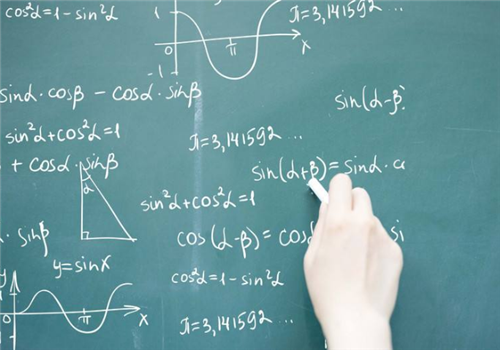 cos²α=1-sin²α
1
0
π
x
-1
π=3,141592...
sinα·cosβ - cosα·sinβ
sin(α-β)
sin²α+cos²α=1
π=3,141592...
+ cosα·sinβ
α
sin(α+β)=sinα·c
sin²α+cos²α=1
·sinβ
cos(α-β)=cos
si
y=sinx
cos²α=1-sin²α
y
1
0
π
x
π=3,141592...